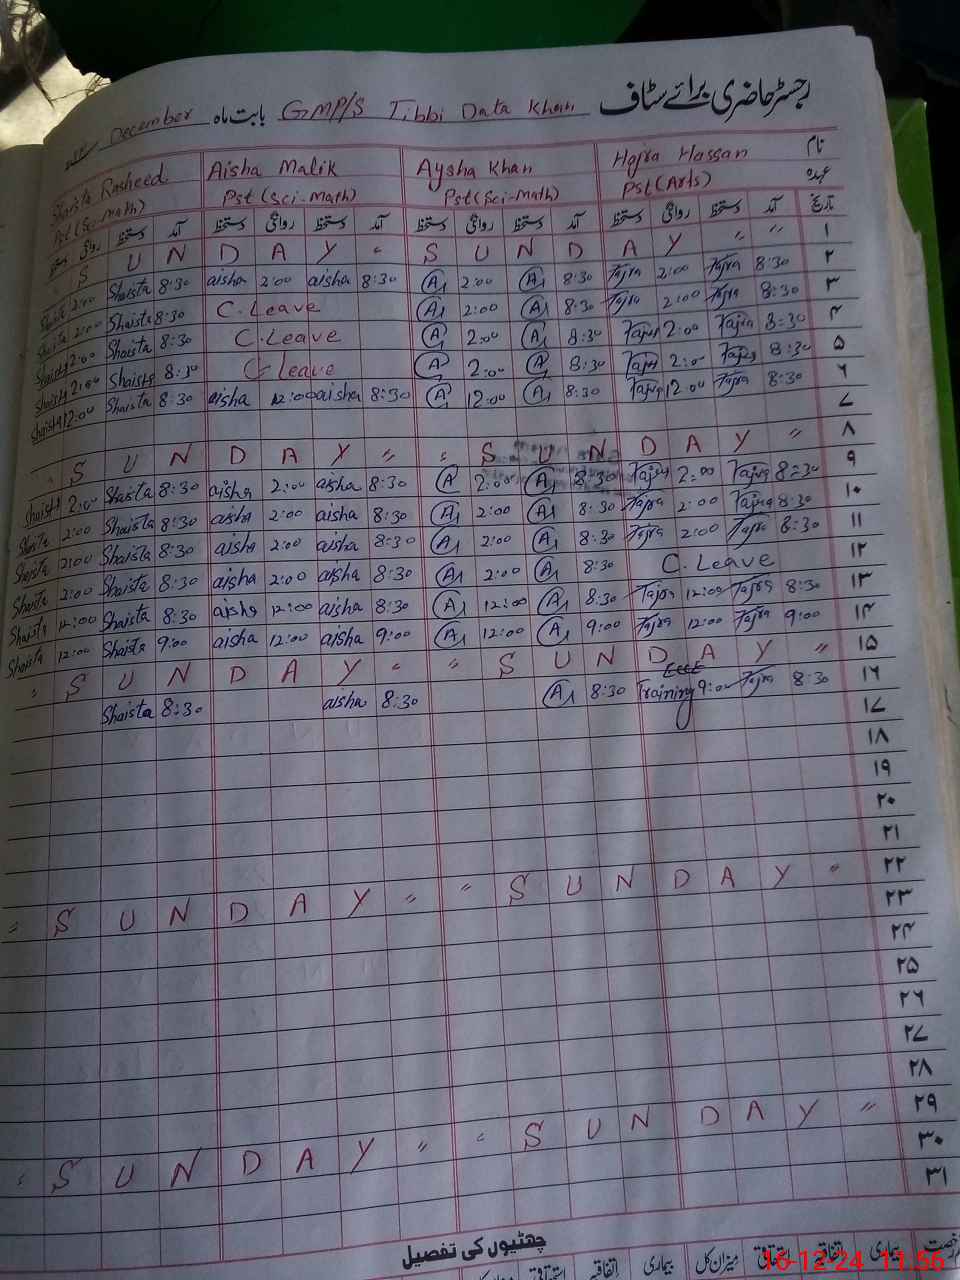 رجسٹر حاضری برائے سٹاف GMP/S Tibbi Data Khan بابت ماہ December
Shaista Rasheed Aisha Malik Aysha Khan Hajra Hassan نام
Pst (Sci-Math) Pst (Sci-Math) Pst (Sci-Math) Pst (Arts) عہدہ
دستخط روانگی دستخط آمد دستخط روانگی دستخط آمد دستخط روانگی دستخط آمد دستخط روانگی دستخط آمد تاریخ
S U N D A Y " S U N D A Y " " ۱
Shaista 2:00 Shaista 8:30 aisha 2:00 aisha 8:30 A 2:00 A 8:30 Hajra 2:00 Hajra 8:30 ۲
Shaista 2:00 Shaista 8:30 C. Leave A 2:00 A 8:30 Hajra 2:00 Hajra 8:30 ۳
Shaista 2:00 Shaista 8:30 C. Leave A 2:00 A 8:30 Hajra 2:00 Hajra 8:30 ۴
Shaista 2:00 Shaista 8:30 C Leave A 2:00 A 8:30 Hajra 2:00 Hajra 8:30 ۵
Shaista 12:00 Shaista 8:30 aisha 12:00 aisha 8:30 A 12:00 A 8:30 Hajra 12:00 Hajra 8:30 ۶
۷
" S U N D A Y " " S U N D A Y " ۸
Shaista 2:00 Shaista 8:30 aisha 2:00 aisha 8:30 A 2:00 A 8:30 Hajra 2:00 Hajra 8:30 ۹
Shaista 2:00 Shaista 8:30 aisha 2:00 aisha 8:30 A 2:00 A 8:30 Hajra 2:00 Hajra 8:30 ۱۰
Shaista 2:00 Shaista 8:30 aisha 2:00 aisha 8:30 A 2:00 A 8:30 Hajra 2:00 Hajra 8:30 ۱۱
Shaista 2:00 Shaista 8:30 aisha 2:00 aisha 8:30 A 2:00 A 8:30 C. Leave ۱۲
Shaista 12:00 Shaista 8:30 aisha 12:00 aisha 8:30 A 12:00 A 8:30 Hajra 12:00 Hajra 8:30 ۱۳
Shaista 12:00 Shaista 9:00 aisha 12:00 aisha 9:00 A 12:00 A 9:00 Hajra 12:00 Hajra 9:00 ۱۴
" S U N D A Y " " S U N D A Y " ۱۵
Shaista 8:30 aisha 8:30 A 8:30 Training 9:00 Hajra 8:30 ۱۶
۱۷
۱۸
۱۹
۲۰
۲۱
" S U N D A Y " " S U N D A Y " ۲۲
۲۳
۲۴
۲۵
۲۶
۲۷
۲۸
" S U N D A Y " " S U N D A Y " ۲۹
۳۰
۳۱
چھٹیوں کی تفصیل
رخصت بیماری اتفاقیہ استحقاقی میزان کل بیماری اتفاقیہ استحقاقی
16-12-24 11:56